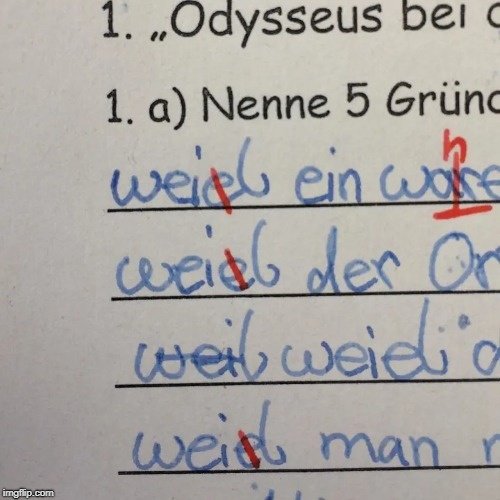 1. „Odysseus bei
1. a) Nenne 5 Gründ
h
weiel ein ware
weiel der Or
weil weiel d
weiel man
imgflip.com